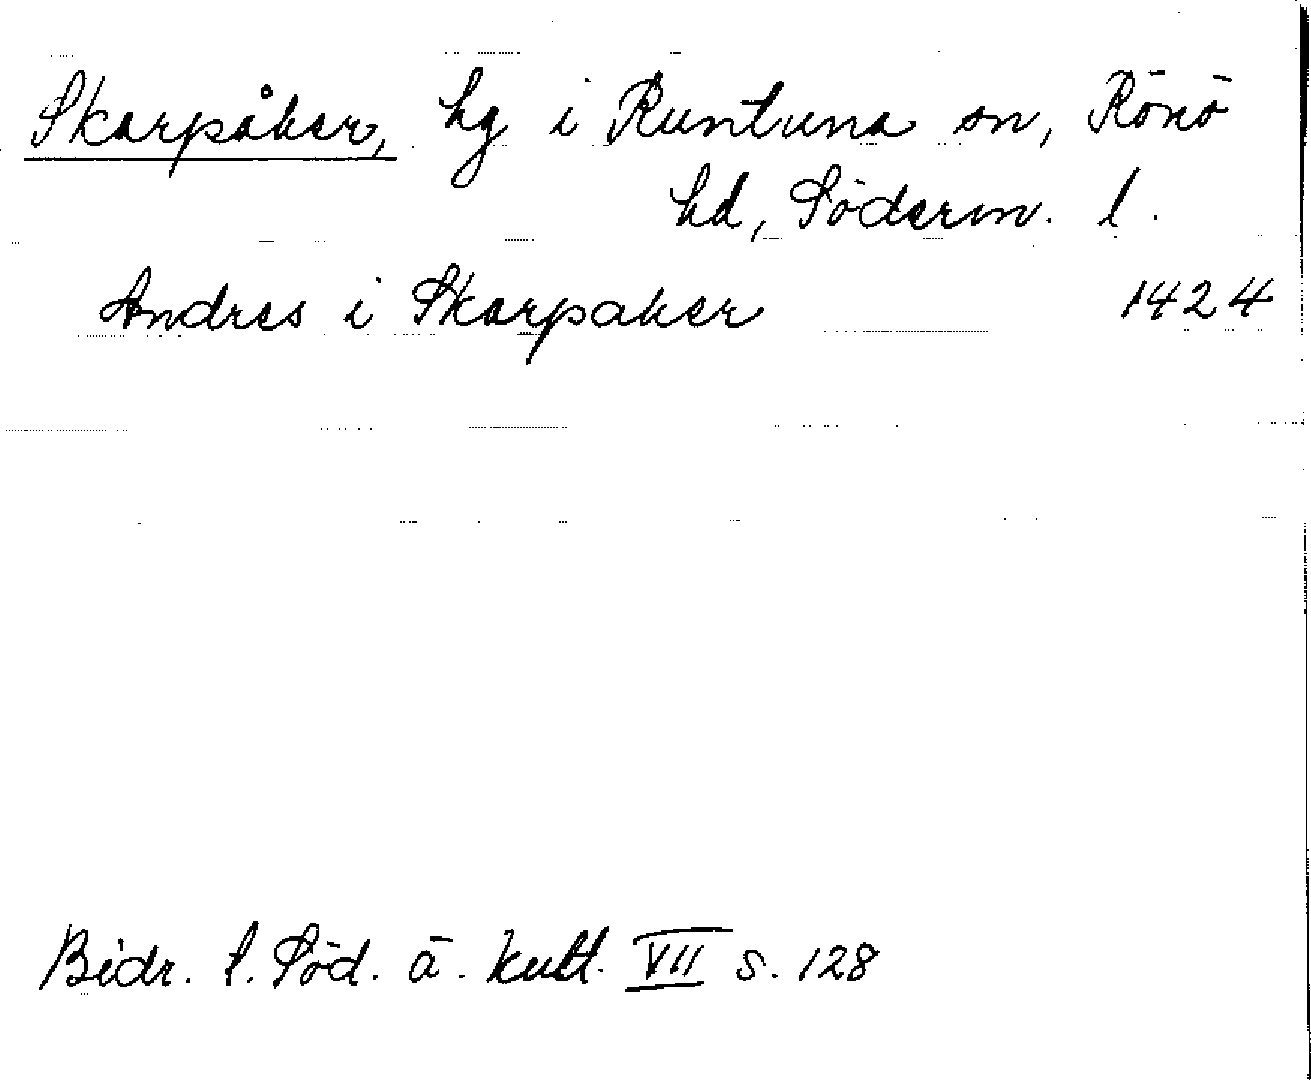 Skarpåker, hg i Runtuna sn, Rönö
hd, Söderm. l.
Andres i Skarpaker 1424
Bidr. t. Söd. ä. kult. VII s. 128